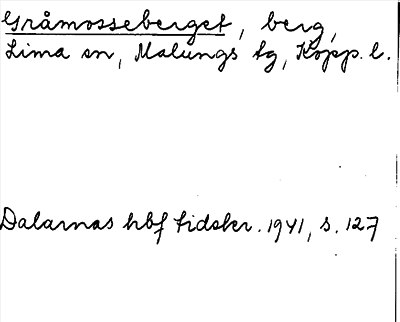 Gråmosseberget, berg,
Lima sn, Malungs tg, Kopp. l.
Dalarnas hbf tidskr. 1941, s. 127